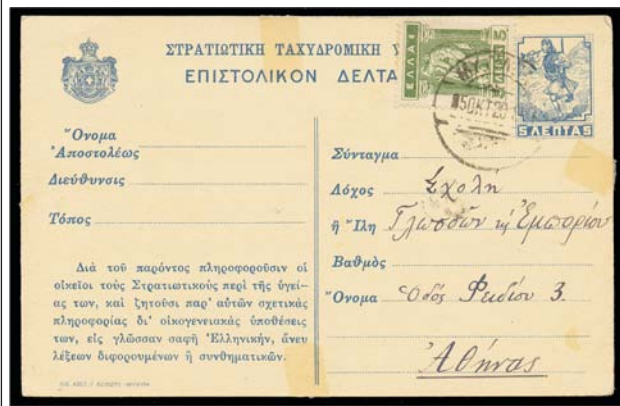 ΣΤΡΑΤΙΩΤΙΚΗ ΤΑΧΥΔΡΟΜΙΚΗ Υ
ΕΠΙΣΤΟΛΙΚΟΝ ΔΕΛΤΑ
ΕΛΛΑΣ
5 ΛΕΠΤΑ 5
5 ΟΚΤ 20
Ὄνομα
Ἀποστολέως
Διεύθυνσις
Τόπος
Διὰ τοῦ παρόντος πληροφοροῦσιν οἱ
οἰκεῖοι τοὺς Στρατιωτικοὺς περὶ τῆς ὑγεί-
ας των, καὶ ζητοῦσι παρ' αὐτῶν σχετικὰς
πληροφορίας δι' οἰκογενειακὰς ὑποθέσεις
των, εἰς γλῶσσαν σαφῆ Ἑλληνικήν, ἄνευ
λέξεων διφορουμένων ἢ συνθηματικῶν.
Σύνταγμα
Λόχος Σχολὴ
ἢ Ἴλη Γλωσσῶν κ Ἐμπορίου
Βαθμὸς
Ὄνομα Ὁδός Φειδίου 3.
Ἀθήνας